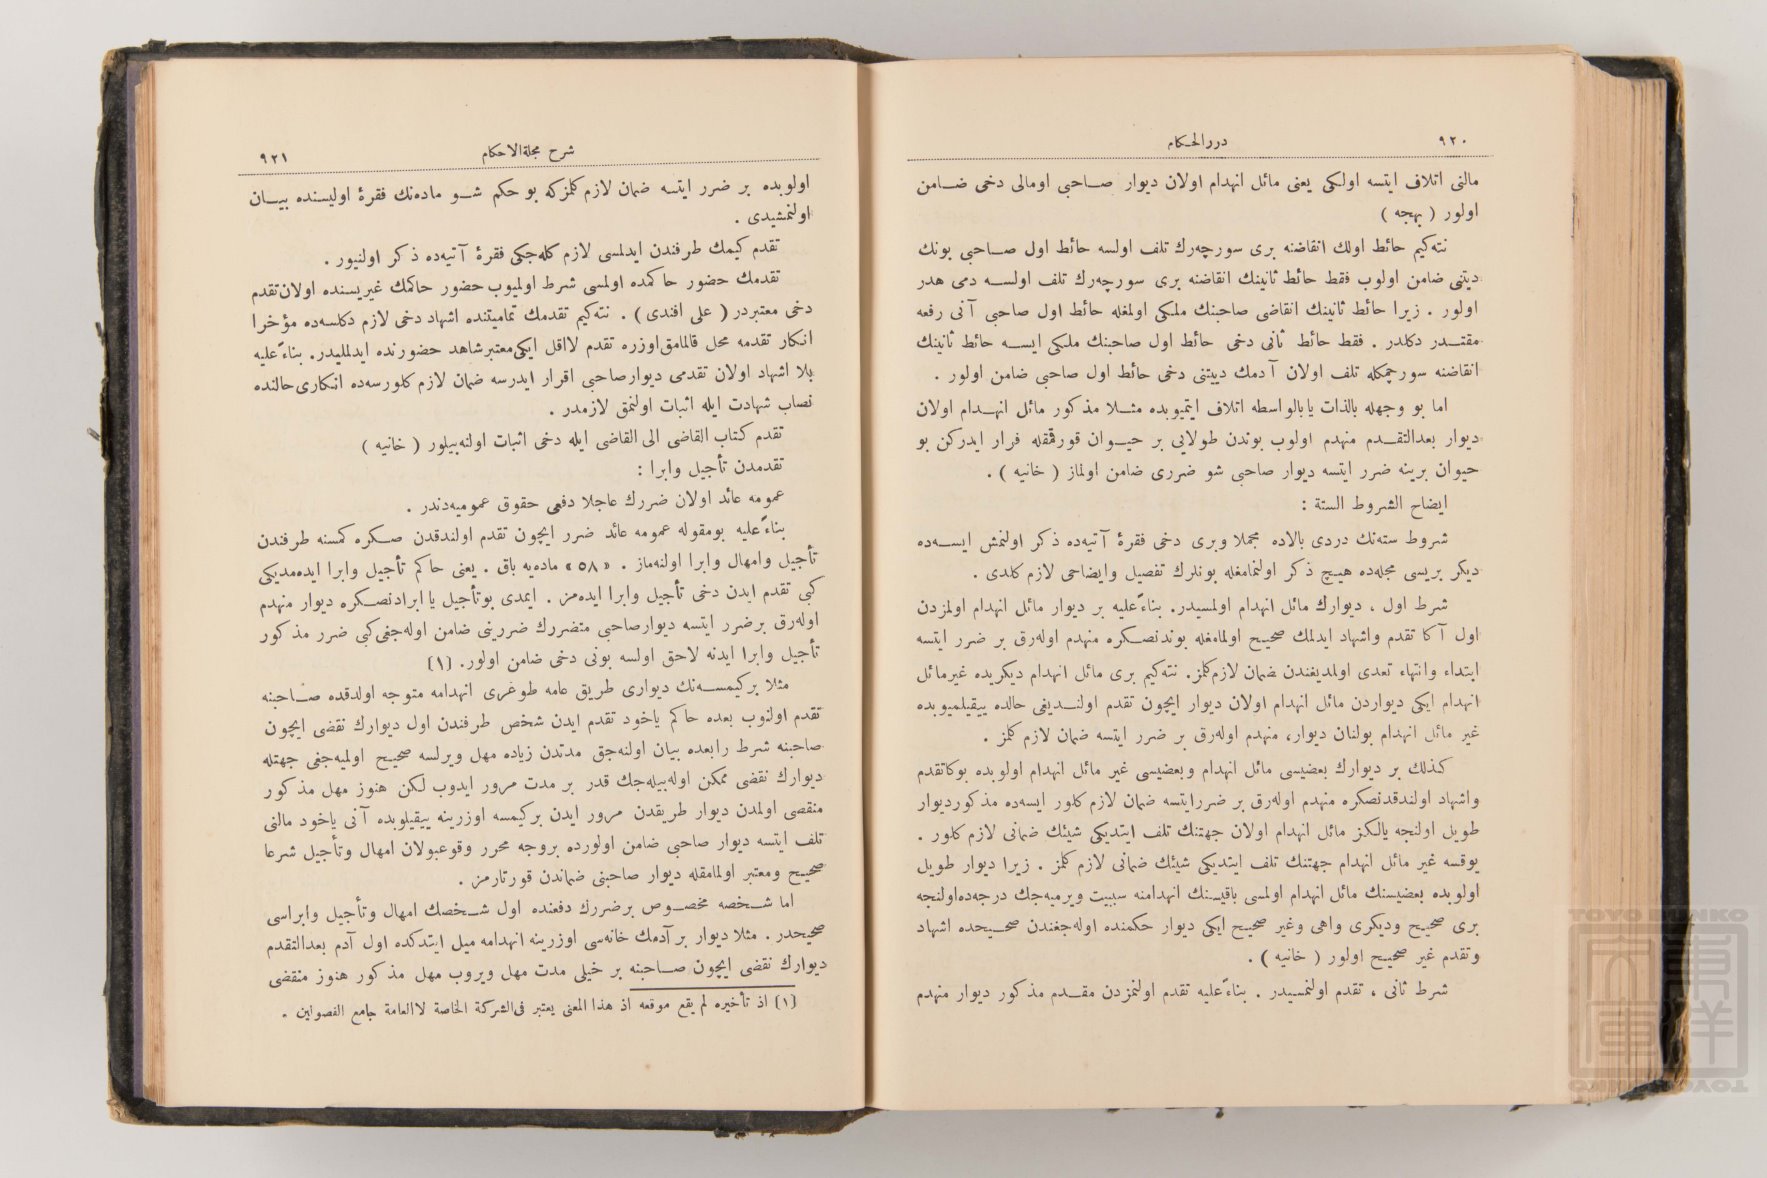 ٩٢٠
دررالحكام
مالنی اتلاف ایتسه اولكی یعنی مائل انهدام اولان دیوار صاحبی اومالی دخی ضامن
اولور ( بهجه )
نته‌كیم حائط اولك انقاضنه بری سورچه‌رك تلف اولسه حائط اول صاحبی بونك
دیتنی ضامن اولوب فقط حائط ثانینك انقاضنه بری سورچه‌رك تلف اولسه دمی هدر
اولور . زیرا حائط ثانینك انقاضی صاحبنك ملكی اولمغله حائط اول صاحبی آنی رفعه
مقتدر دكلدر . فقط حائط ثانی دخی حائط اول صاحبنك ملكی ایسه حائط ثانینك
انقاضنه سورچمكله تلف اولان آدمك دیتنی دخی حائط اول صاحبی ضامن اولور .
اما بو وجهله بالذات یابالواسطه اتلاف ایتمیوبده مثلا مذكور مائل انهدام اولان
دیوار بعدالتقدم منهدم اولوب بوندن طولایی بر حیوان قورقمقله فرار ایدركن بو
حیوان برینه ضرر ایتسه دیوار صاحبی شو ضرری ضامن اولماز ( خانیه ) .
ایضاح الشروط الستة :
شروط سته‌نك دردی بالاده مجملا وبری دخی فقرهٔ آتیه‌ده ذكر اولنمش ایسه‌ده
دیكر بریسی مجله‌ده هیچ ذكر اولنمامغله بونلرك تفصیل وایضاحی لازم كلدی .
شرط اول ، دیوارك مائل انهدام اولمسیدر. بناءً علیه بر دیوار مائل انهدام اولمزدن
اول آكا تقدم واشهاد ایدلمك صحیح اولمامغله بوندنصكره منهدم اوله‌رق بر ضرر ایتسه
ابتداء وانتهاء تعدی اولمدیغندن ضمان لازم‌كلمز. نته‌كیم بری مائل انهدام دیكریده غیرمائل
انهدام ایكی دیواردن مائل انهدام اولان دیوار ایچون تقدم اولندیغی حالده ییقیلمیوبده
غیر مائل انهدام بولنان دیوار، منهدم اوله‌رق بر ضرر ایتسه ضمان لازم كلمز .
كذلك بر دیوارك بعضیسی مائل انهدام وبعضیسی غیر مائل انهدام اولوبده بوكاتقدم
واشهاد اولندقدنصكره منهدم اوله‌رق بر ضررایتسه ضمان لازم كلور ایسه‌ده مذكوردیوار
طویل اولنجه یالكز مائل انهدام اولان جهتنك تلف ایتدیكی شیئك ضمانی لازم كلور .
یوقسه غیر مائل انهدام جهتنك تلف ایتدیكی شیئك ضمانی لازم كلمز . زیرا دیوار طویل
اولوبده بعضیسنك مائل انهدام اولمسی باقیسنك انهدامنه سببیت ویرمیه‌جك درجه‌ده‌اولنجه
بری صحیح ودیكری واهی وغیر صحیح ایكی دیوار حكمنده اوله‌جغندن صحیحده اشهاد
وتقدم غیر صحیح اولور ( خانیه ) .
شرط ثانی ، تقدم اولنمسیدر . بناءً علیه تقدم اولنمزدن مقدم مذكور دیوار منهدم
شرح مجلةالاحكام
٩٢١
اولوبده بر ضرر ایتسه ضمان لازم كلمزكه بو حكم شو ماده‌نك فقرهٔ اولیسنده بیان
اولنمشیدی .
تقدم كیمك طرفندن ایدلمسی لازم كله‌جكی فقرهٔ آتیه‌ده ذكر اولنیور .
تقدمك حضور حاكمده اولمسی شرط اولمیوب حضور حاكمك غیریسنده اولان تقدم
دخی معتبردر ( علی افندی ) . نته‌كیم تقدمك تمامیتنده اشهاد دخی لازم دكلسه‌ده مؤخرا
انكار تقدمه محل قالمامق‌اوزره تقدم لااقل ایكی‌معتبرشاهد حضورنده ایدلملیدر. بناءً علیه
بلا اشهاد اولان تقدمی دیوارصاحبی اقرار ایدرسه ضمان لازم كلورسه‌ده انكاری‌حالنده
نصاب شهادت ایله اثبات اولنمق لازمدر .
تقدم كتاب القاضی الی القاضی ایله دخی اثبات اولنه‌بیلور ( خانیه )
تقدمدن تأجیل وابرا :
عمومه عائد اولان ضررك عاجلا دفعی حقوق عمومیه‌دندر .
بناءً علیه بومقوله عمومه عائد ضرر ایچون تقدم اولندقدن صكره كمسنه طرفندن
تأجیل وامهال وابرا اولنه‌ماز . «٥٨» ماده‌یه باق . یعنی حاكم تأجیل وابرا ایده‌مدیكی
كبی تقدم ایدن دخی تأجیل وابرا ایده‌مز . ایمدی بوتأجیل یا ابرادنصكره دیوار منهدم
اوله‌رق برضرر ایتسه دیوارصاحبی متضررك ضررینی ضامن اوله‌جغی‌كبی ضرر مذكور
تأجیل وابرا ایدنه لاحق اولسه بونی دخی ضامن اولور. (١)
مثلا بركیمسه‌نك دیواری طریق عامه طوغری انهدامه متوجه اولدقده صاحبنه
تقدم اولنوب بعده حاكم یاخود تقدم ایدن شخص طرفندن اول دیوارك نقضی ایچون
صاحبنه شرط رابعده بیان اولنه‌جق مدتدن زیاده مهل ویرلسه صحیح اولمیه‌جغی جهتله
دیوارك نقضی ممكن اوله‌بیله‌جك قدر بر مدت مرور ایدوب لكن هنوز مهل مذكور
منقضی اولمدن دیوار طریقدن مرور ایدن بركیمسه اوزرینه ییقیلوبده آنی یاخود مالنی
تلف ایتسه دیوار صاحبی ضامن اولورده بروجه محرر وقوعبولان امهال وتأجیل شرعا
صحیح ومعتبر اولمامقله دیوار صاحبنی ضماندن قورتارمز .
اما شخصه مخصوص برضررك دفعنده اول شخصك امهال وتأجیل وابراسی
صحیحدر . مثلا دیوار بر آدمك خانه‌سی اوزرینه انهدامه میل ایتدكده اول آدم بعدالتقدم
دیوارك نقضی ایچون صاحبنه بر خیلی مدت مهل ویروب مهل مذكور هنوز منقضی
(١) اذ تأخیره لم یقع موقعه اذ هذا المعنی یعتبر فی‌الشركة الخاصة لاالعامة جامع الفصولین .
TOYO BUNKO
東洋文庫